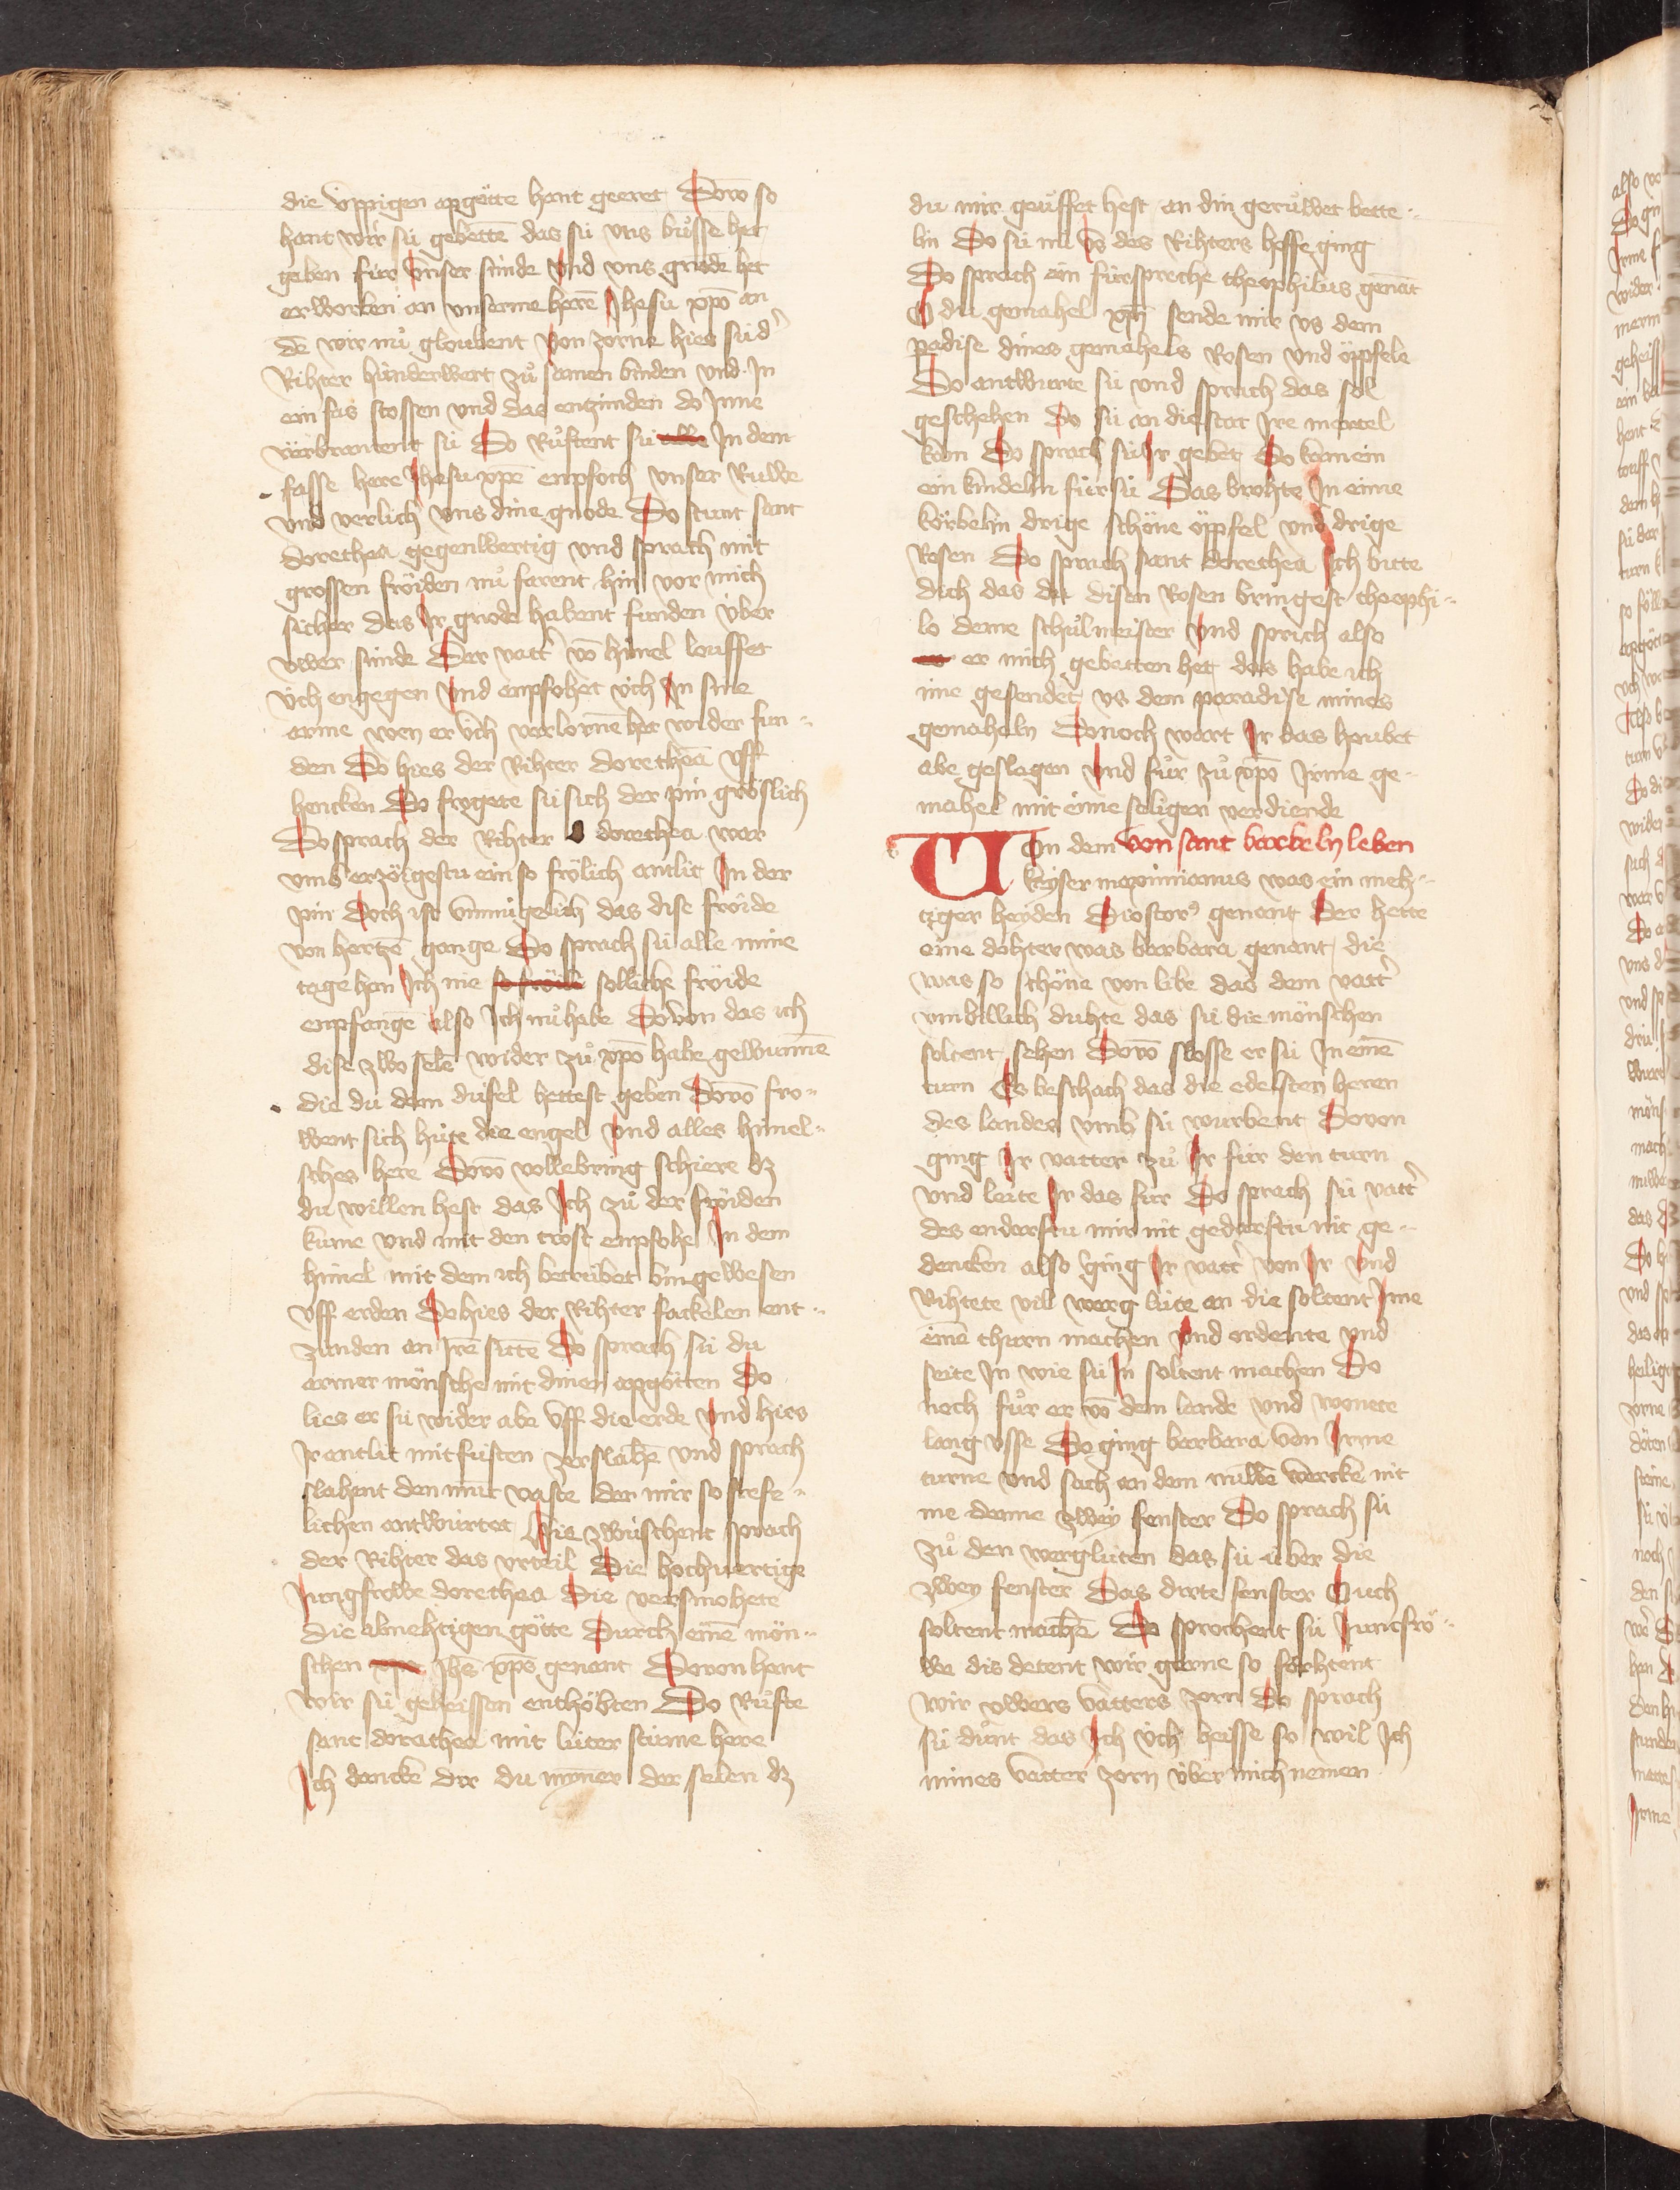 die üppigen apgötte hant geeret Dovō so
hant wir sü gebettē das sü vns bůsse het
geben für vnser sünde vnd vns gnode het
erworben an vnserme herē Jhesu xp̄o an
dē wir nů gloubent Von zorne hies sü d'
Rihter hünderwert zů samen binden vnd In
ein fas stossen vnd das entzünden do Inne
verbrantent sü Do Růftent sü In dem
fasse here Jhesu xp̄e enpfoch vnser Ruwe
vnd verlich vns dine gnode Do stunt sant
dorethea gegenwertig vnd sprach mit
grossen fröiden nů farent hin vor mich
sicher das Ir gnode habent funden über
vwer sünde Der vatt' vō himel louffet
üch engegen vnd enpfohet üch In sine
arme wen er üch verlornē het wider fun-
den Do hies der Rihter dorethea vff
hencken Do frögete sü sich der pin gröslich
Do sprach der Rihter O dorethea war
vmb erzögestu ein so frölich antlit In der
pin Doch ist vnmügelich das dise fröide
von hertzē gange Do sprach sü alle mine
tage han Ich nie so fröili solliche fröide
enpfangē also Ich nů habe Dovon das ich
dise zwo selē wider zů xp̄o habe gewunnē
die du dem düfel hettest geben Dovō fro-
went sich hüte die engel vnd alles himel-
sches here Dovō vollebring schiere dz
du willen hest das Ich zů der fröiden
kume vnd mit den trost enpfohe In dem
himel mit dem ich betrübet bin gewesen
vff erden Do hies der Rihter fackelen ent-
zünden an Irē sittē Do sprach sü du
armer mönsche mit dinen apgötten Do
lies er sü wider abe vff die erde vnd hies
Ir antlit mit füsten zerslahē vnd sprach
slahent den munt vaste der mir so frefe-
lichen antwurtet Hie zwüschent sprach
der Rihter das vrteil Die hochuertige
Jungfrowe dorethea Die versmohete
die almehtigen götte Durch einē mön-
schen Jhē xp̄o genant Dovon hant
wir sü geheissen enthöbten Do Růfte
sant dorethea mit luter stime here
Ich dancke dir du mynner der selen dz
du mir geůffet hest an din gerůwet bette-
lin Do sü nu vs des Rihters hoffe ging
Do sprach ein fürspreche theophilus genāt
O du gemahel xp̄i sende mir vs dem
padise dines gemahels Rosen vnd öppfele
Do antwurte sü vnd sprach das sol
geschehen Do sü an die stat Ire martel
kam Do sprach sü Ir gebet Do kam ein
ein kindelin für sü Das brohte In eime
körbelin drige schöne öppfel vnd drige
Rosen Do sprach sant dorethea Ich bitte
dich das du disen Rosen bringest theophi-
lo deme schůlmeister vnd sprich also
er mich gebetten het das habe ich
ime gesendet vs dem paradise mines
gemaheln Donoch wart Ir das houbet
abe geslagen vnd fůr zů xp̄o Irme ge-
mahel mit eime seligen verdiende
von sant barbeln leben
VOn dem
keyser maximianus was ein meh-
tiger heyden Dioscor9 genant Der hette
eine dohter was barbara genant die
was so schöne von libe das dem vatt'
vmbillich duhte das sü die mönschen
soltent sehen Dovō slosse er sü In einē
turn Es beschach das die edelsten heren
des landes vmb sü wurbent Dovon
ging Ir vatter zů Ir für den turn
vnd leite Ir das für Do sprach sü vatt'
des endarftu mir nit gedarftu nit ge-
dencken also ging Ir vatt' von Ir vnd
Rihtete vil werg lüte an die soltent Ime
einē thurn machen vnd ordente vnd
seite In wie sü In soltent machen Do
noch fůr er vō dem lande vnd wonete
lang vsse Do ging barbara von Irme
turne vnd sach an dem nüwē wercke nit
me denne zwey fenster Do sprach sü
zů den werglüten das sü über die
zwey fenster Das dirte fenster Ouch
soltent machē Do sprochent sü Juncfrö-
we dis detent wir gerne so förhtent
wir vwers vatters zorn Do sprach
sü důnt das Ich üch heisse so wil Ich
mines vatter zorn über mich nemen